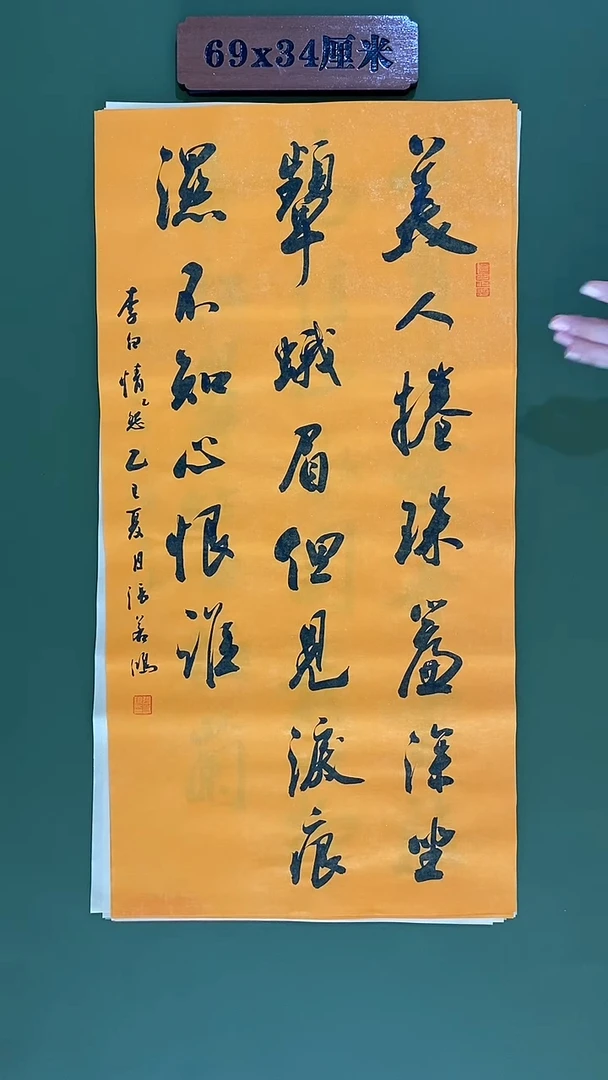 69x34厘米
美人捲珠簾深坐
顰蛾眉但見淚痕
濕不知心恨誰
李白情怨乙巳夏月張若鴻